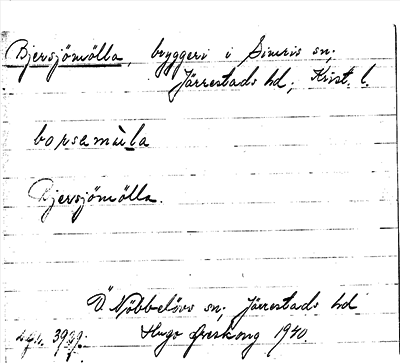 Bjersjömölla, bryggeri i Simris sn;
Järrestads hd; Krist. l.
Bjersjömölla.
Ö Nöbbelövs sn; Järrestads hd
Hugo Areskoug 1940.